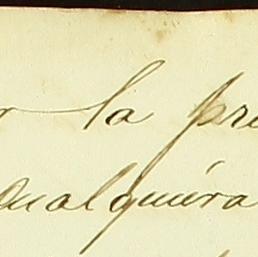 la pre
qualquiera